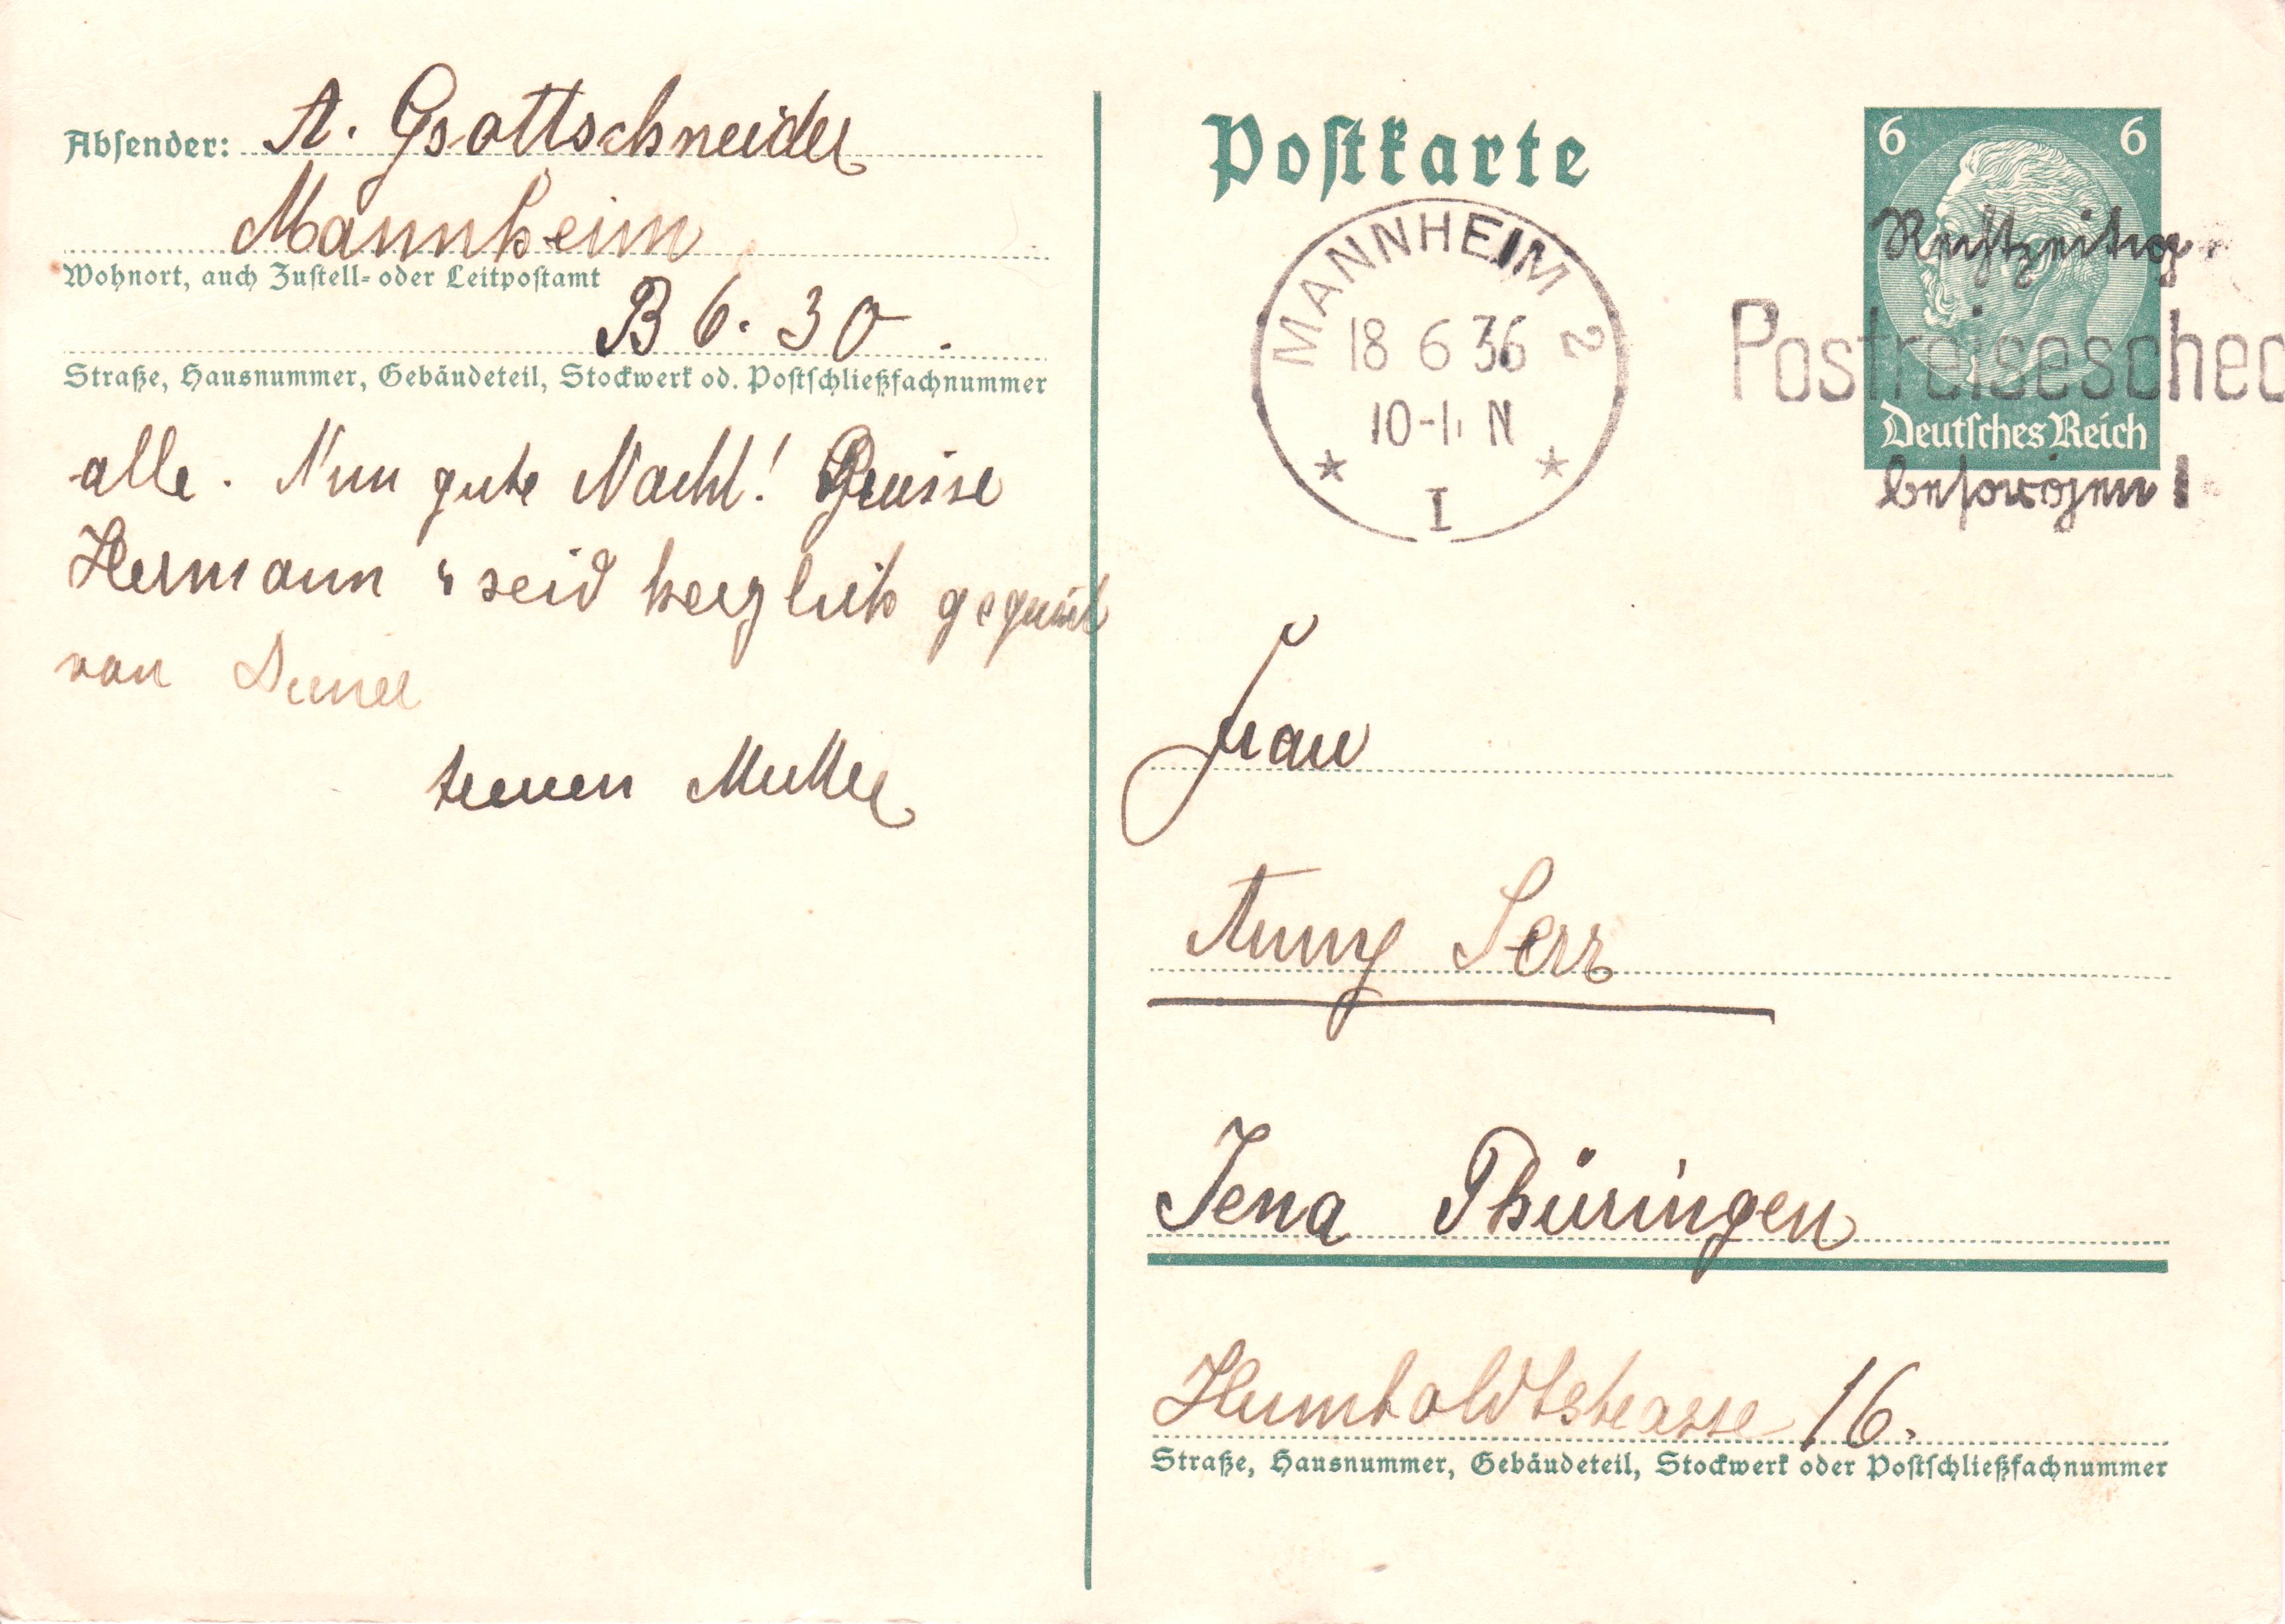 Absender: A. Gsottschneider
Mannheim
Wohnort, auch Zustell- oder Leitpostamt
B 6. 30.
Straße, Hausnummer, Gebäudeteil, Stockwerk od. Postschließfachnummer
alle. Nun gute Nacht! Grüsse
Hermann u seid herzlich gegrüßt
von Deiner
treuen Mutter
Postkarte
MANNHEIM 2
18 6 36
10-11 N
I
6 6
Rechtzeitig
Postreisescheck
Deutsches Reich
besorgen!
Frau
Anny Serr
Jena Thüringen
Humboldtstrasse 16.
Straße, Hausnummer, Gebäudeteil, Stockwerk oder Postschließfachnummer